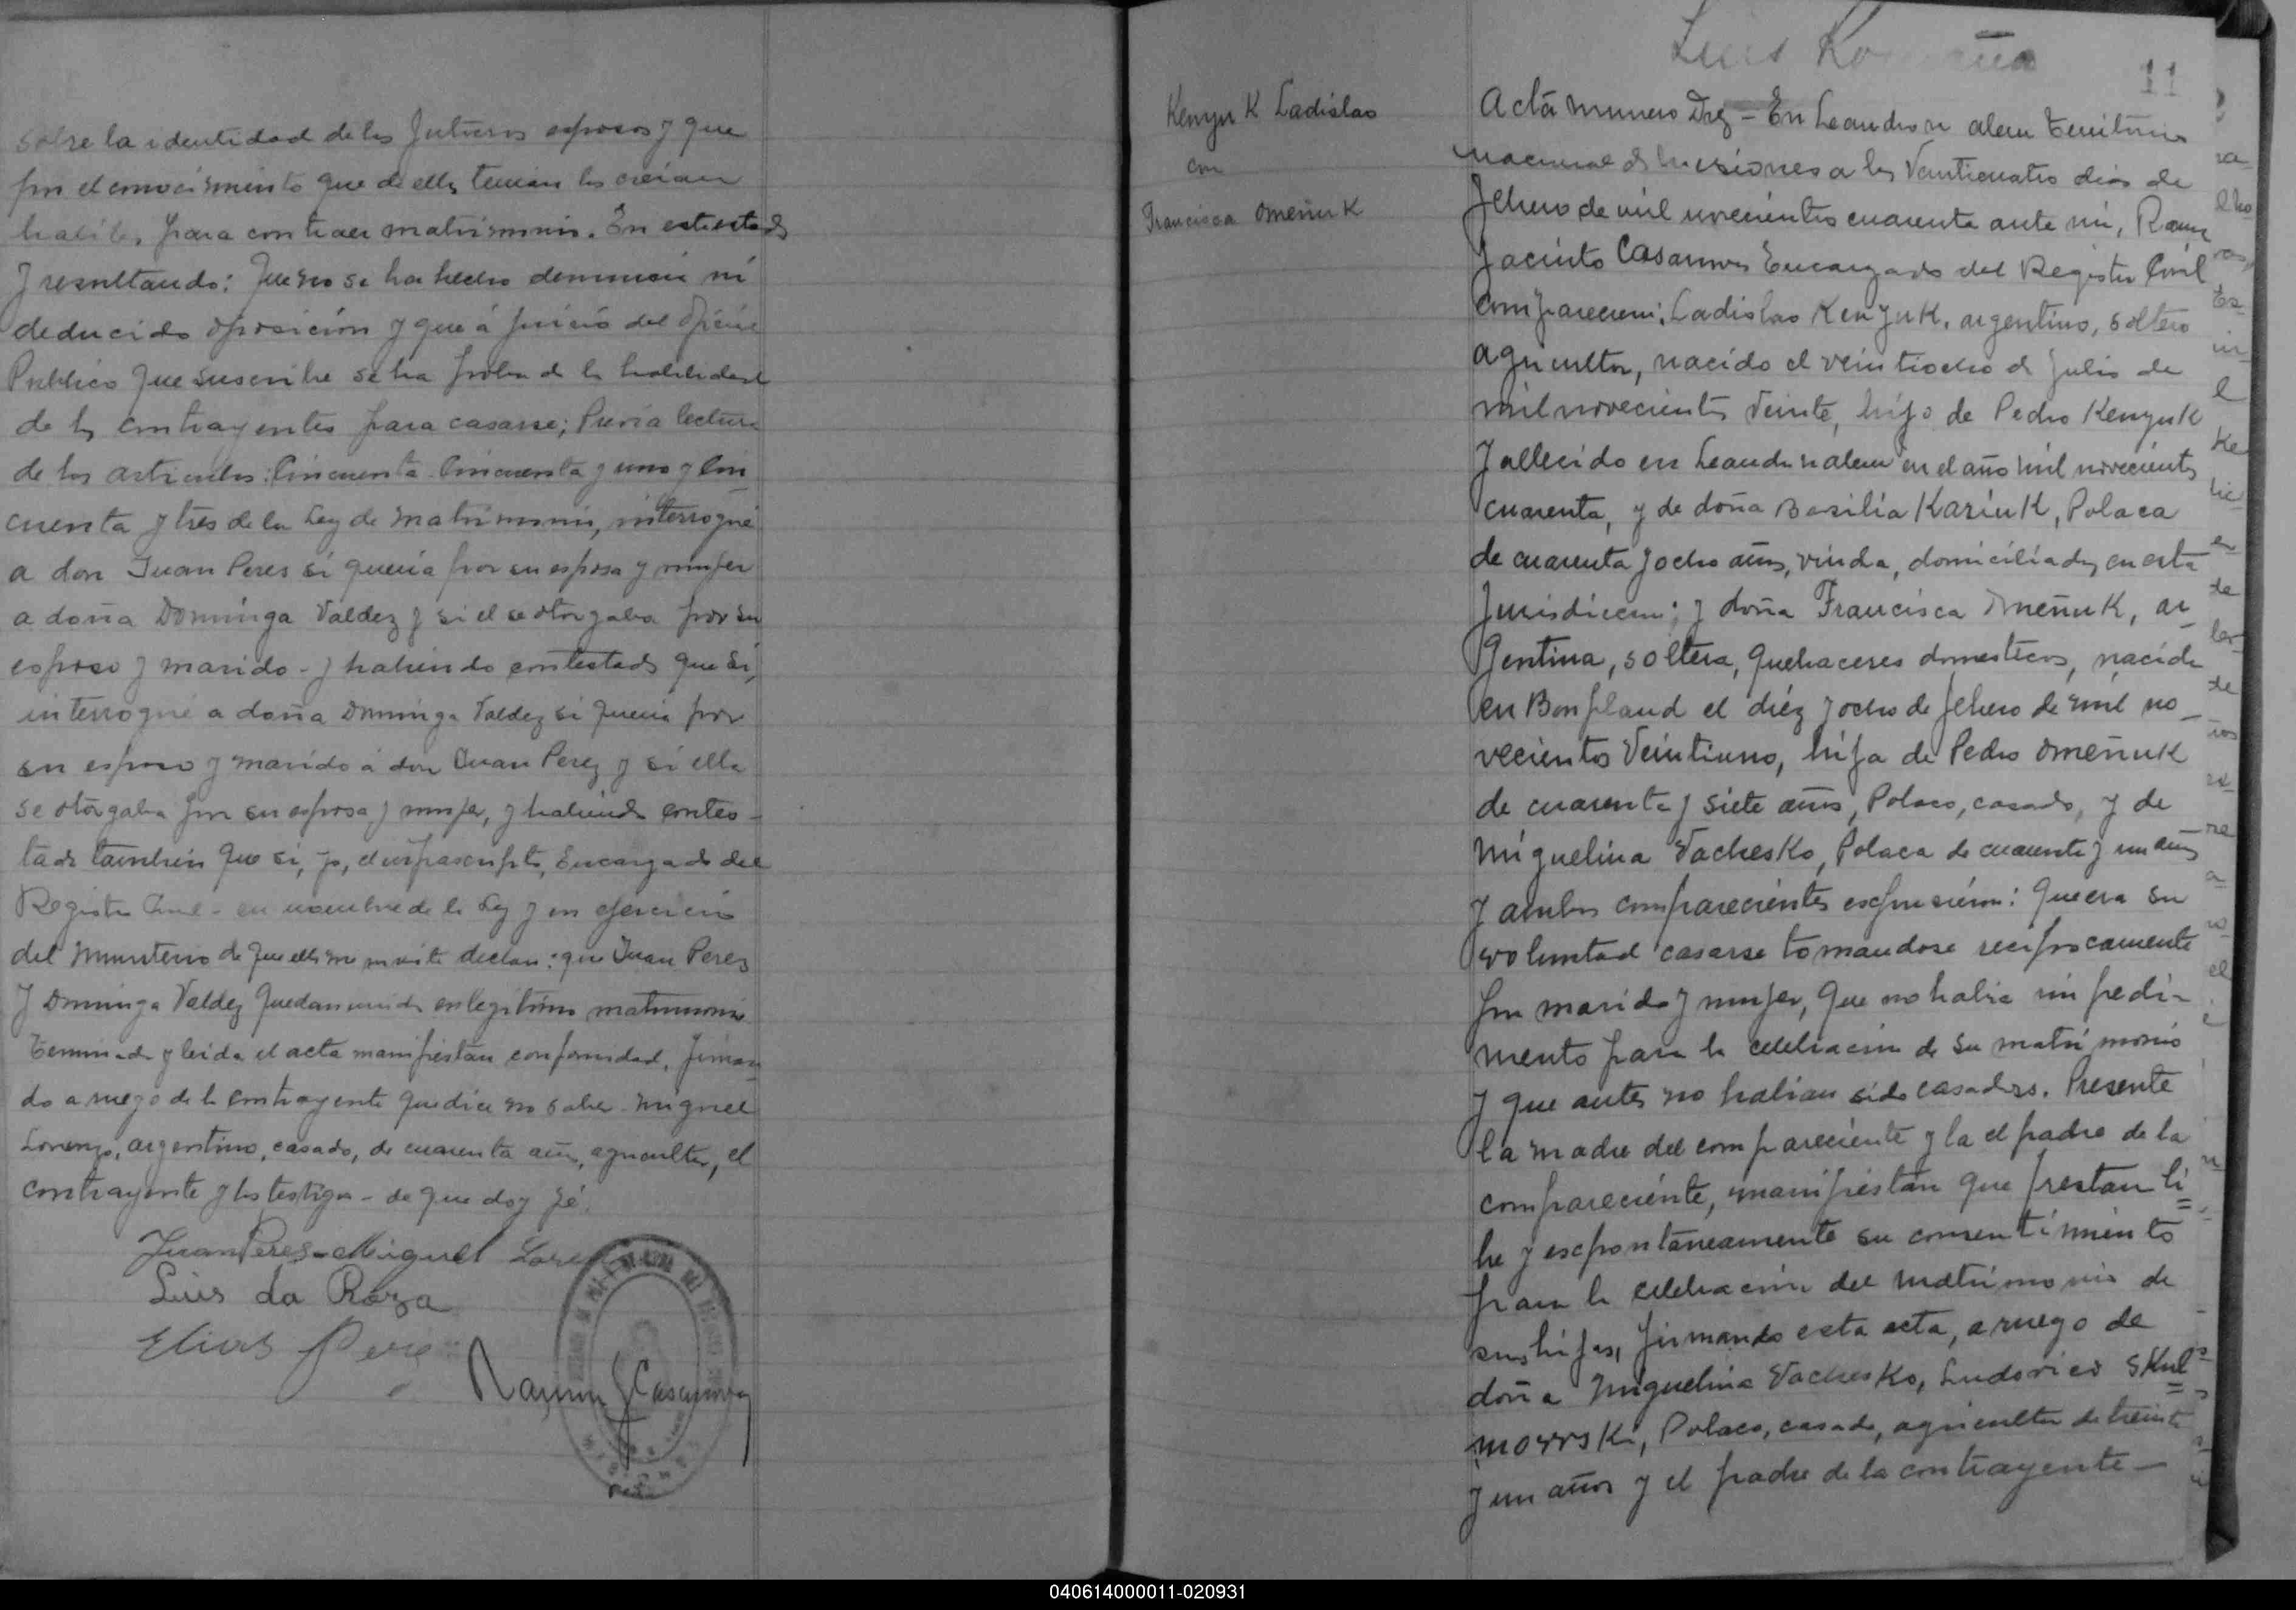 sobre la identidad de los futuros esposos y que
por el conocimiento que de ellos tenian los creian
habiles, para contraer matrimonio. En este estado
y resultando: Que no se ha hecho denuncia ni
deducido oposición y que á juicio del Oficial
Publico que suscribe se ha probado la habilidad
de los contrayentes para casarse; Previa lectura
de los articulos: Cincuenta Cincuenta y uno y Cin
cuenta y tres de la Ley de Matrimonio, interrogué
a don Juan Peres si queria por su esposa y mujer
a doña Dominga Valdez y si el se otorgaba por su
esposo y marido - y habiendo contestado que si,
interrogué a doña Dominga Valdez si queria por
su esposo y marido á don Juan Perez y si ella
se otorgaba por su esposa y mujer, y habiendo contes-
tado tambien que si, yo, el infrascripto, Encargado del
Registro Civil - en nombre de la Ley y en ejercicio
del Ministerio de que ella me inviste declaro: que Juan Peres
y Dominga Valdez quedan unidos en legitimo matrimonio
Terminada y leida el acta manifiestan conformidad, firman
do a ruego de la contrayente que dice no saber Miguel
Lorenzo, argentino, casado, de cuarenta años, agricultor, el
contrayente y los testigos - de que doy fé.
Juan Peres - Miguel
Luis da Roza
Elias
Ramon J Casanova
Luis
11
Kenyuk Ladislao
con
Francisca Omeñuk
Acta numero Diez - En Leandro n alem Territorio
nacional de Misiones a los Veinticuatro dias de
febrero de mil novecientos cuarenta ante mi, Ramon
Jacinto Casanova Encargado del Registro Civil
comparecen: Ladislao Kenyuk, argentino, soltero
agricultor, nacido el veintiocho de Julio de
mil novecientos Veinte, hijo de Pedro Kenyuk
fallecido en Leandro n alem en el año mil novecientos
cuarenta, y de doña Basilia Kariuk, Polaca
de cuarenta y ocho años, viuda, domiciliados en esta
Jurisdiccion; y doña Francisca Omeñuk, ar
gentina, soltera, quehaceres domesticos, nacida
en Bonpland el diéz y ocho de febrero de mil no-
vecientos Veintiuno, hija de Pedro Omeñuk
de cuarenta y siete años, Polaco, casado, y de
Miguelina Vachesko, Polaca de cuarenta y un años
y ambos comparecientes expusieron: Que era su
voluntad casarse tomandose reciprocamente
por marido y mujer, Que no habia impedi-
mento para la celebracion de su matrimonio
y que antes no habian sido casados. Presente
la madre del compareciente y la el padre de la
compareciente, manifiestan que prestan li
bre y espontaneamente su consentimiento
para la celebración del matrimonio de
sus hijos, firmando esta acta, a ruego de
doña Miguelina Vachesko, Ludovico Skul
morrski, Polaco, casado, agricultor de treinta
y un años y el padre de la contrayente -
040614000011-020931